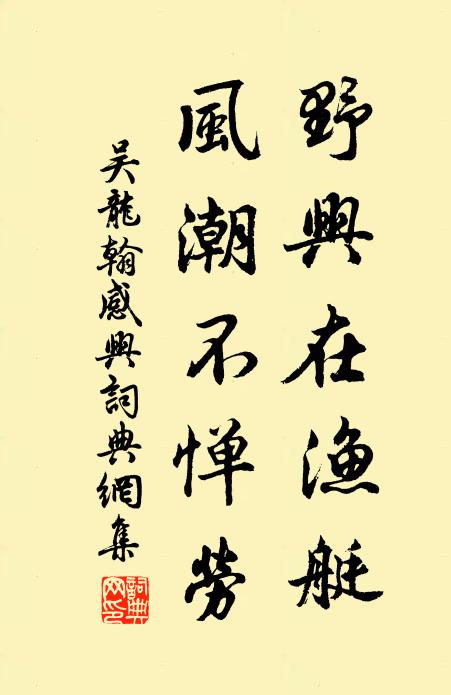 野興在漁艇
風潮不惮勞
吳龍翰感興詞典網集
詞典网印